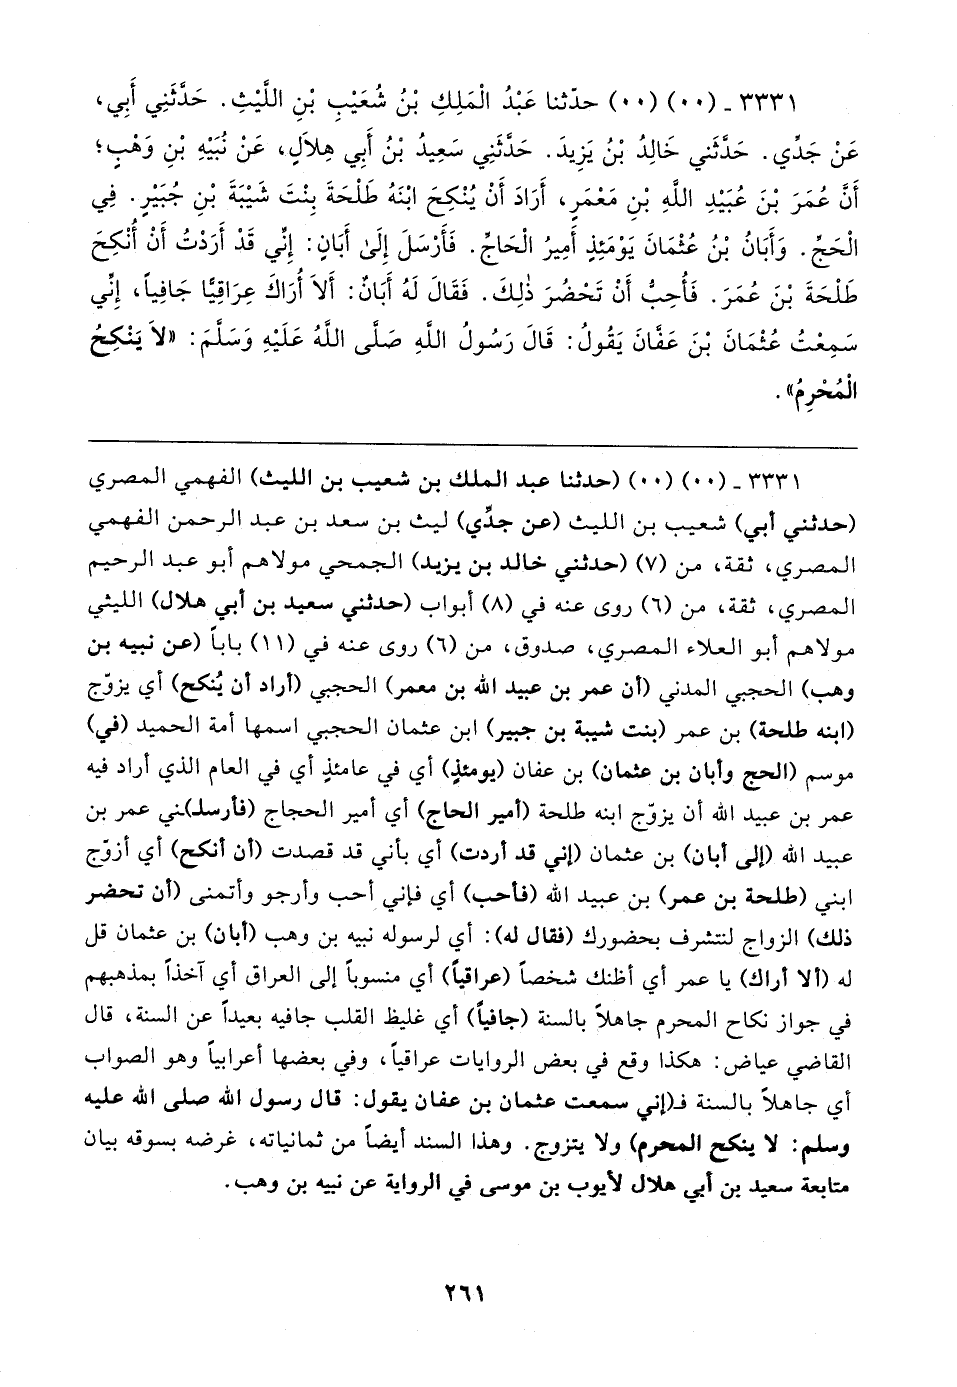 ٣٣٣١ - (٠٠) (٠٠) حدّثنا عَبْدُ الْمَلِكِ بْنُ شُعَيْبِ بْنِ اللَّيْثِ. حَدَّثَنِي أَبِي،
عَنْ جَدِّي. حَدَّثَنِي خَالِدُ بْنُ يَزِيدَ. حَدَّثَنِي سَعِيدُ بْنُ أَبِي هِلاَلٍ، عَنْ نُبَيْهِ بْنِ وَهْبٍ؛
أَنَّ عُمَرَ بْنَ عُبَيْدِ اللَّهِ بْنِ مَعْمَرٍ، أَرَادَ أَنْ يُنْكِحَ ابْنَهُ طَلْحَةَ بِنْتَ شَيْبَةَ بْنِ جُبَيْرٍ. فِي
الْحَجِّ. وَأَبَانُ بْنُ عُثْمَانَ يَوْمَئِذٍ أَمِيرُ الْحَاجِّ. فَأَرْسَلَ إِلَىٰ أَبَانٍ: إِنِّي قَدْ أَرَدْتُ أَنْ أُنْكِحَ
طَلْحَةَ بْنَ عُمَرَ. فَأُحِبُّ أَنْ تَحْضُرَ ذٰلِكَ. فَقَالَ لَهُ أَبَانٌ: أَلاَ أُرَاكَ عِرَاقِيًّا جَافِياً، إِنِّي
سَمِعْتُ عُثْمَانَ بْنَ عَفَّانَ يَقُولُ: قَالَ رَسُولُ اللَّهِ صَلَّى اللَّهُ عَلَيْهِ وَسَلَّمَ: «لاَ يَنْكِحُ
الْمُحْرِمُ».
٣٣٣١ - (٠٠) (٠٠) (حدثنا عبد الملك بن شعيب بن الليث) الفهمي المصري
(حدثني أبي) شعيب بن الليث (عن جدِّي) ليث بن سعد بن عبد الرحمن الفهمي
المصري، ثقة، من (٧) (حدثني خالد بن يزيد) الجمحي مولاهم أبو عبد الرحيم
المصري، ثقة، من (٦) روى عنه في (٨) أبواب (حدثني سعيد بن أبي هلال) الليثي
مولاهم أبو العلاء المصري، صدوق، من (٦) روى عنه في (١١) باباً (عن نبيه بن
وهب) الحجبي المدني (أن عمر بن عبيد الله بن معمر) الحجبي (أراد أن يُنكح) أي يزوّج
(ابنه طلحة) بن عمر (بنت شيبة بن جبير) ابن عثمان الحجبي اسمها أمة الحميد (في)
موسم (الحج وأبان بن عثمان) بن عفان (يومئذٍ) أي في عامئذٍ أي في العام الذي أراد فيه
عمر بن عبيد الله أن يزوّج ابنه طلحة (أمير الحاج) أي أمير الحجاج (فأرسلـ)ـني عمر بن
عبيد الله (إلى أبان) بن عثمان (إني قد أردت) أي بأني قد قصدت (أن أنكح) أي أزوّج
ابني (طلحة بن عمر) بن عبيد الله (فأحب) أي فإني أحب وأرجو وأتمنى (أن تحضر
ذلك) الزواج لنتشرف بحضورك (فقال له): أي لرسوله نبيه بن وهب (أبان) بن عثمان قل
له (ألا أراك) يا عمر أي أظنك شخصاً (عراقياً) أي منسوباً إلى العراق أي آخذاً بمذهبهم
في جواز نكاح المحرم جاهلاً بالسنة (جافياً) أي غليظ القلب جافيه بعيداً عن السنة، قال
القاضي عياض: هكذا وقع في بعض الروايات عراقياً، وفي بعضها أعرابياً وهو الصواب
أي جاهلاً بالسنة فـ(إني سمعت عثمان بن عفان يقول: قال رسول الله صلى الله عليه
وسلم: لا ينكح المحرم) ولا يتزوج. وهذا السند أيضاً من ثمانياته، غرضه بسوقه بيان
متابعة سعيد بن أبي هلال لأيوب بن موسى في الرواية عن نبيه بن وهب.
٢٦١